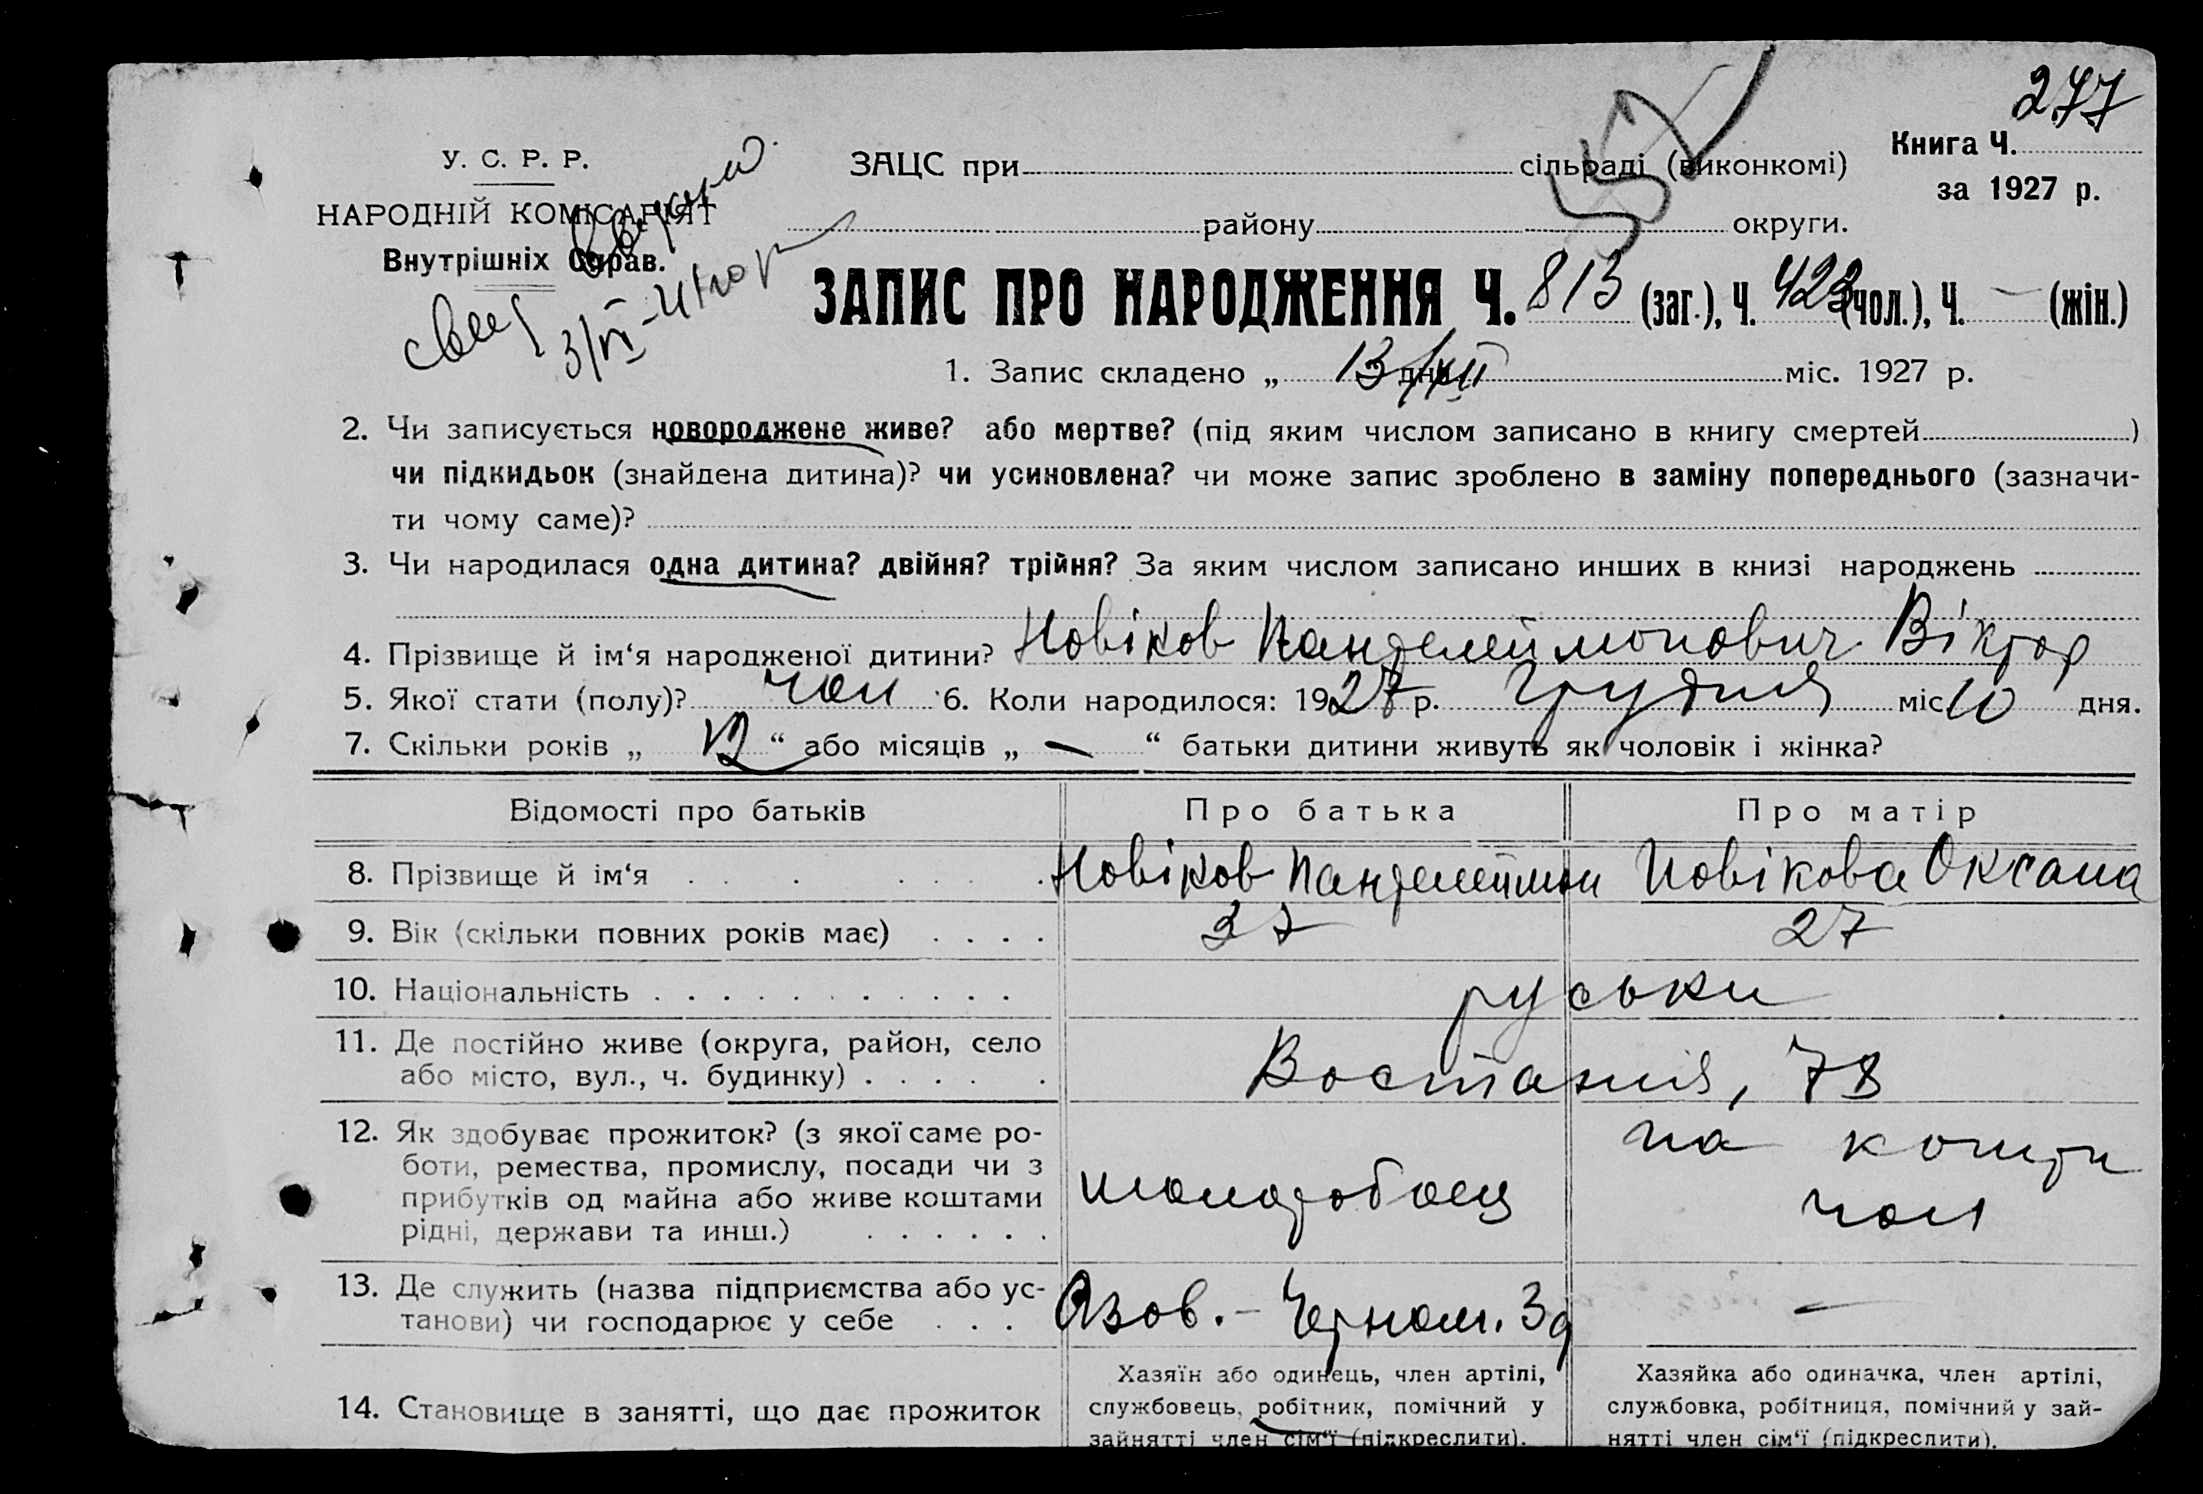 277
У. С. Р. Р.
НАРОДНІЙ КОМІСАРІЯТ
Внутрішніх Справ.
ЗАЦС при сільраді (виконкомі)
району округи.
Книга Ч.
за 1927 р.
ЗАПИС ПРО НАРОДЖЕННЯ Ч. 813 (заг.), Ч. 423 (чол.), Ч. — (жін.)
1. Запис складено „ 13/XII дня міс. 1927 р.
2. Чи записується новороджене живе? або мертве? (під яким числом записано в книгу смертей )
чи підкидьок (знайдена дитина)? чи усиновлена? чи може запис зроблено в заміну попереднього (зазначи-
ти чому саме)?
3. Чи народилася одна дитина? двійня? трійня? За яким числом записано инших в книзі народжень
4. Прізвище й ім‘я народженої дитини? Новіков Пантелеймонович Віктор
5. Якої стати (полу)? чол 6. Коли народилося: 1927 р. Грудня міс 10 дня.
7. Скільки років „ 12 “ або місяців „ — “ батьки дитини живуть як чоловік і жінка?
Відомості про батьків Про батька Про матір
8. Прізвище й ім‘я Новіков Пантелеймон Новікова Оксана
9. Вік (скільки повних років має) 37 27
10. Національність руськи
11. Де постійно живе (округа, район, село
або місто, вул., ч. будинку) Востания, 78
12. Як здобуває прожиток? (з якої саме ро-
боти, ремества, промислу, посади чи з
прибутків од майна або живе коштами
рідні, держави та инш.) молотобоец на кошти
чол
13. Де служить (назва підприємства або ус-
танови) чи господарює у себе Азов.-Черном. Зд —
14. Становище в занятті, що дає прожиток
Хазяїн або одинець, член артілі,
службовець, робітник, помічний у
зайнятті член сім‘ї (підкреслити).
Хазяйка або одиначка, член артілі,
службовка, робітниця, помічний у зай-
нятті член сім‘ї (підкреслити).